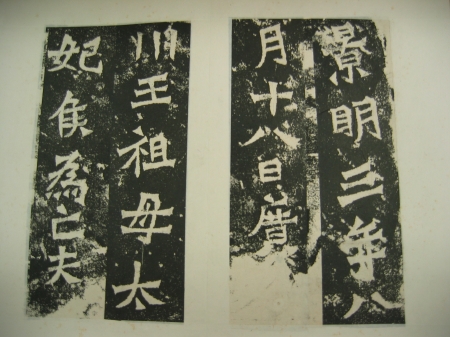 景明三年八
月十八日廣
川王祖母太
妃侯為亡夫